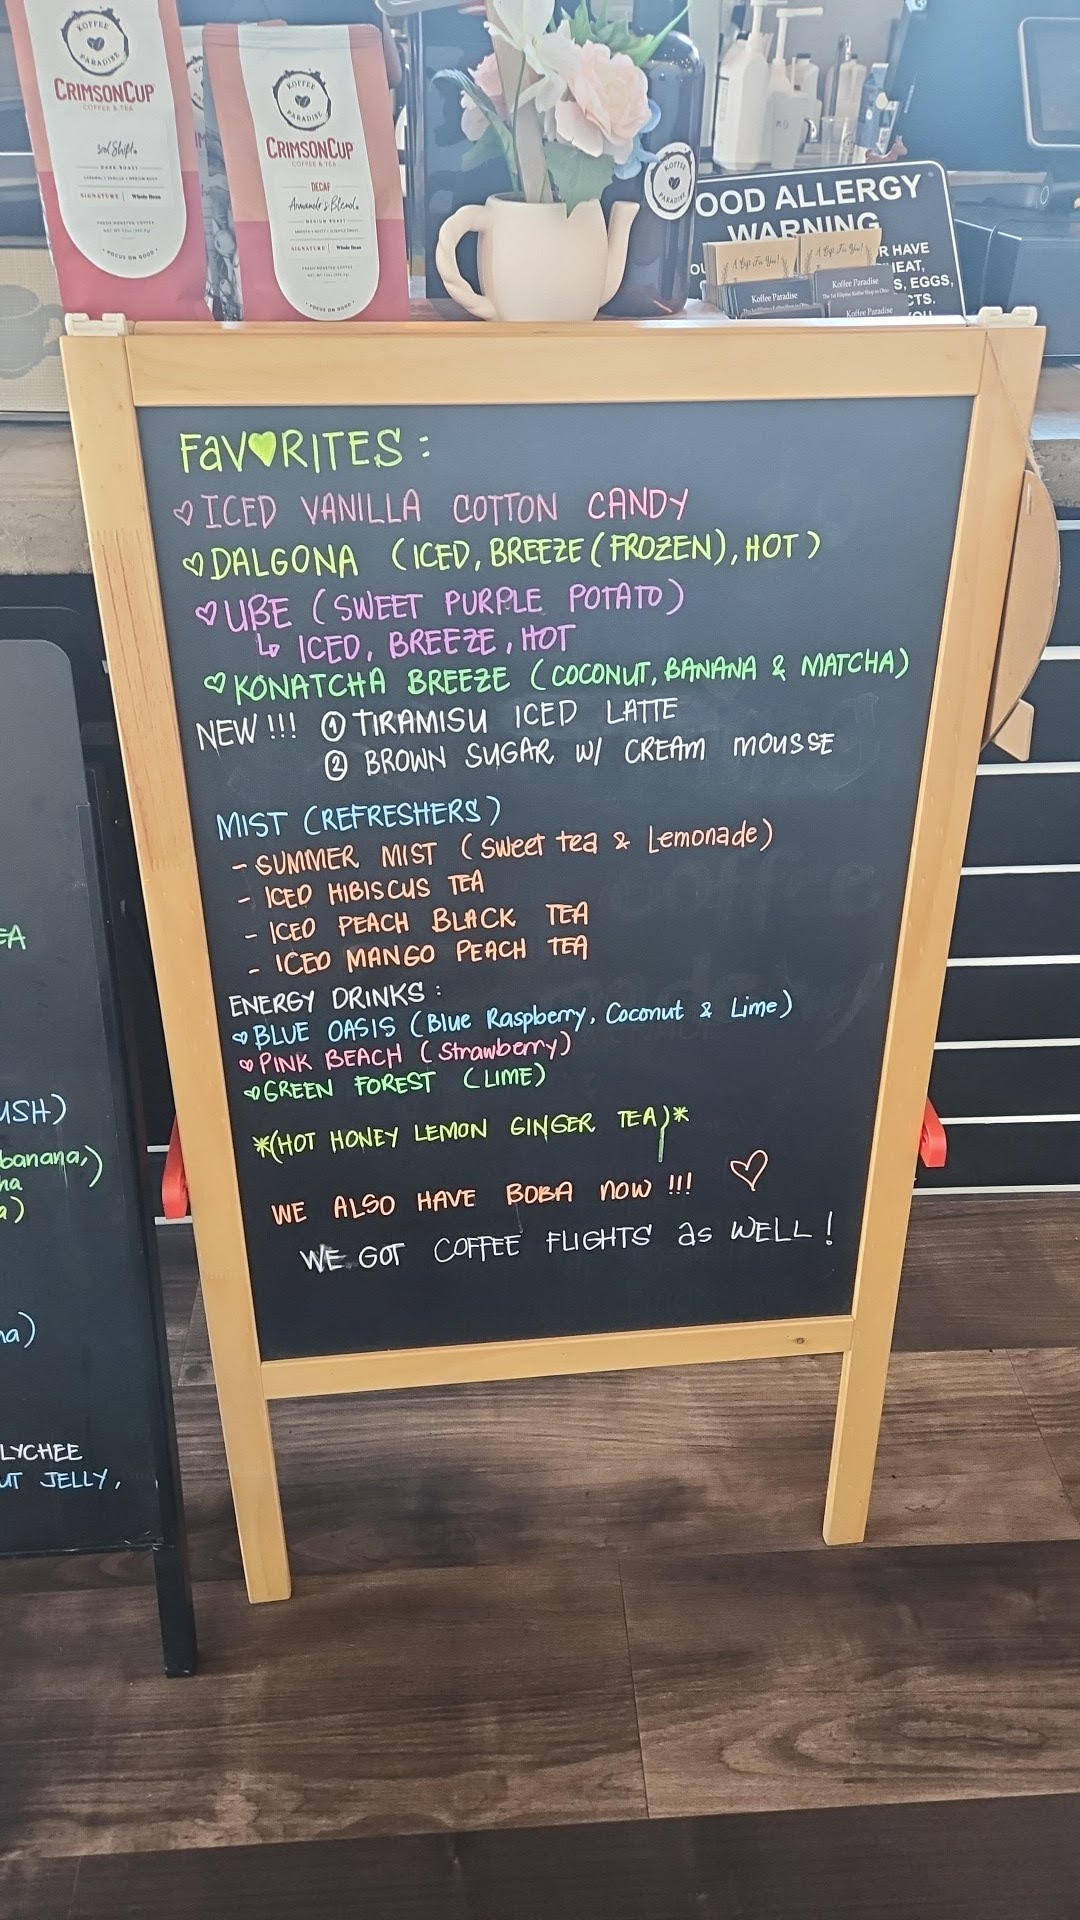 KOFFEE PARADISE
CRIMSONCUP
COFFEE & TEA
DARK ROAST
SIGNATURE | Whole Bean
• FOCUS ON GOOD •
KOFFEE PARADISE
CRIMSONCUP
COFFEE & TEA
DECAF
Armando's Blend
MEDIUM ROAST
SIGNATURE | Whole Bean
• FOCUS ON GOOD •
KOFFEE PARADISE
OOD ALLERGY
WARNING
R HAVE
EAT,
S, EGGS,
CTS.
A Gift For You!
A Gift For You!
Koffee Paradise
Koffee Paradise
Koffee Paradise
FAVORITES:
ICED VANILLA COTTON CANDY
DALGONA (ICED, BREEZE (FROZEN), HOT)
UBE (SWEET PURPLE POTATO)
↳ ICED, BREEZE, HOT
KONATCHA BREEZE (COCONUT, BANANA & MATCHA)
NEW!!! ① TIRAMISU ICED LATTE
② BROWN SUGAR W/ CREAM MOUSSE
MIST (REFRESHERS)
- SUMMER MIST (Sweet tea & Lemonade)
- ICED HIBISCUS TEA
- ICED PEACH BLACK TEA
- ICED MANGO PEACH TEA
ENERGY DRINKS:
BLUE OASIS (Blue Raspberry, Coconut & Lime)
PINK BEACH (Strawberry)
GREEN FOREST (LIME)
*(HOT HONEY LEMON GINGER TEA)*
WE ALSO HAVE BOBA NOW!!!
WE GOT COFFEE FLIGHTS as WELL!
EA
USH)
banana,)
na
a)
na)
LYCHEE
UT JELLY,